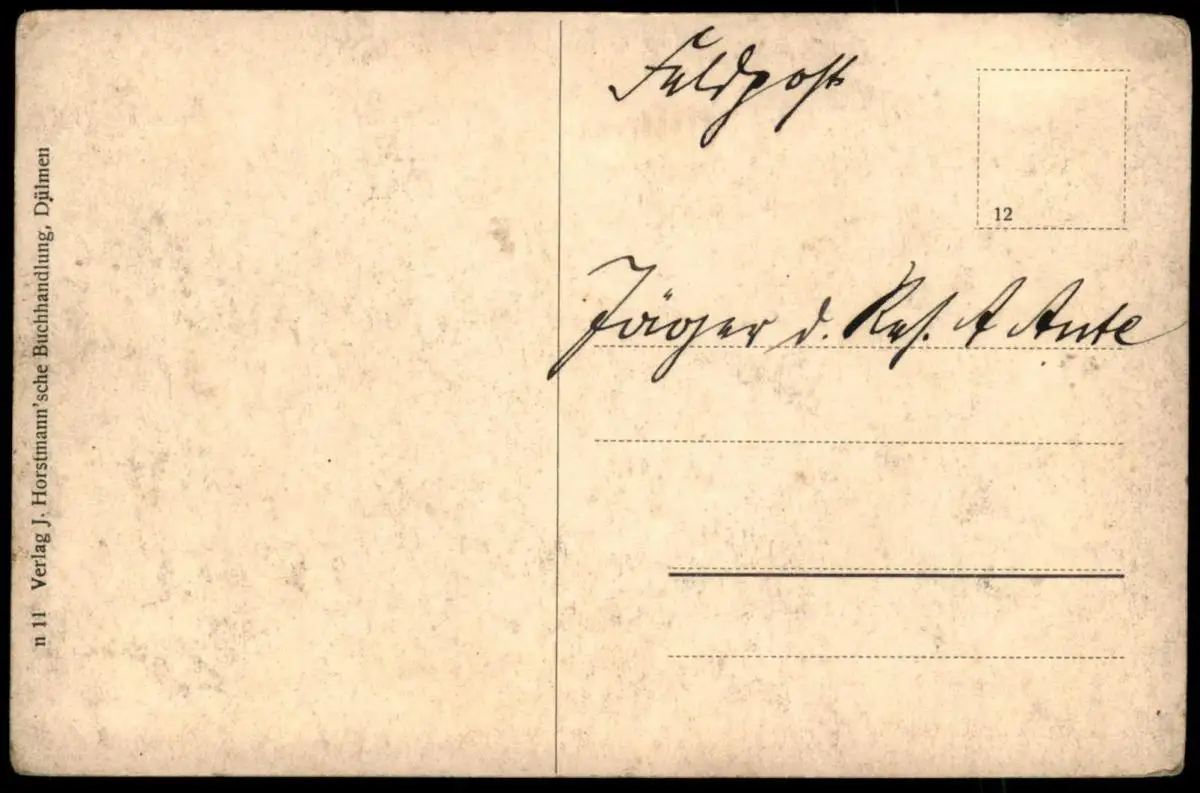 Feldpost
12
Jäger d. Res. A Ante
n 11 Verlag J. Horstmann'sche Buchhandlung, Dülmen